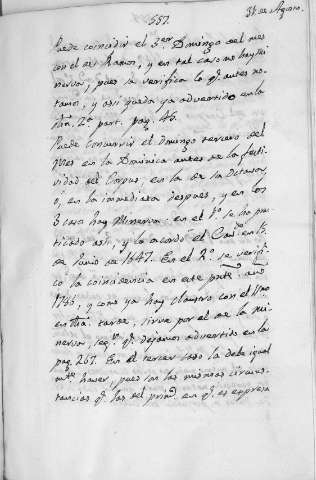 557.
31 de Agosto.
Puede coincidir el 3er. Domingo del mes
con el de Ramos, y en tal caso no hay Mi-
nerva, pues se verifica lo q. antes no-
tamos, y asi queda ya advertido en la
2a. part. pag. 46.
Puede concurrir el Domingo tercero del
mes en la Dominica antes de la festi-
vidad del Corpus, en la de la Octava,
ó, en la immediata despues, y en los
3 casos hay Minerva: en el 1o. se ha prac-
ticado asi, y lo acordó el Cavo. en 15
de Junio de 1647. En el 2o. se verifi-
có la coincidencia en este pnte. año
y como ya hay Claustro con el
en tarde, sirve por el de la Mi-
nerva, segn. q. dejamos advertido en la
pag. 267. En el tercer caso la debe igual
mte. haver, pues son las mismas circuns-
tancias q. las del prim. en q. se expresa